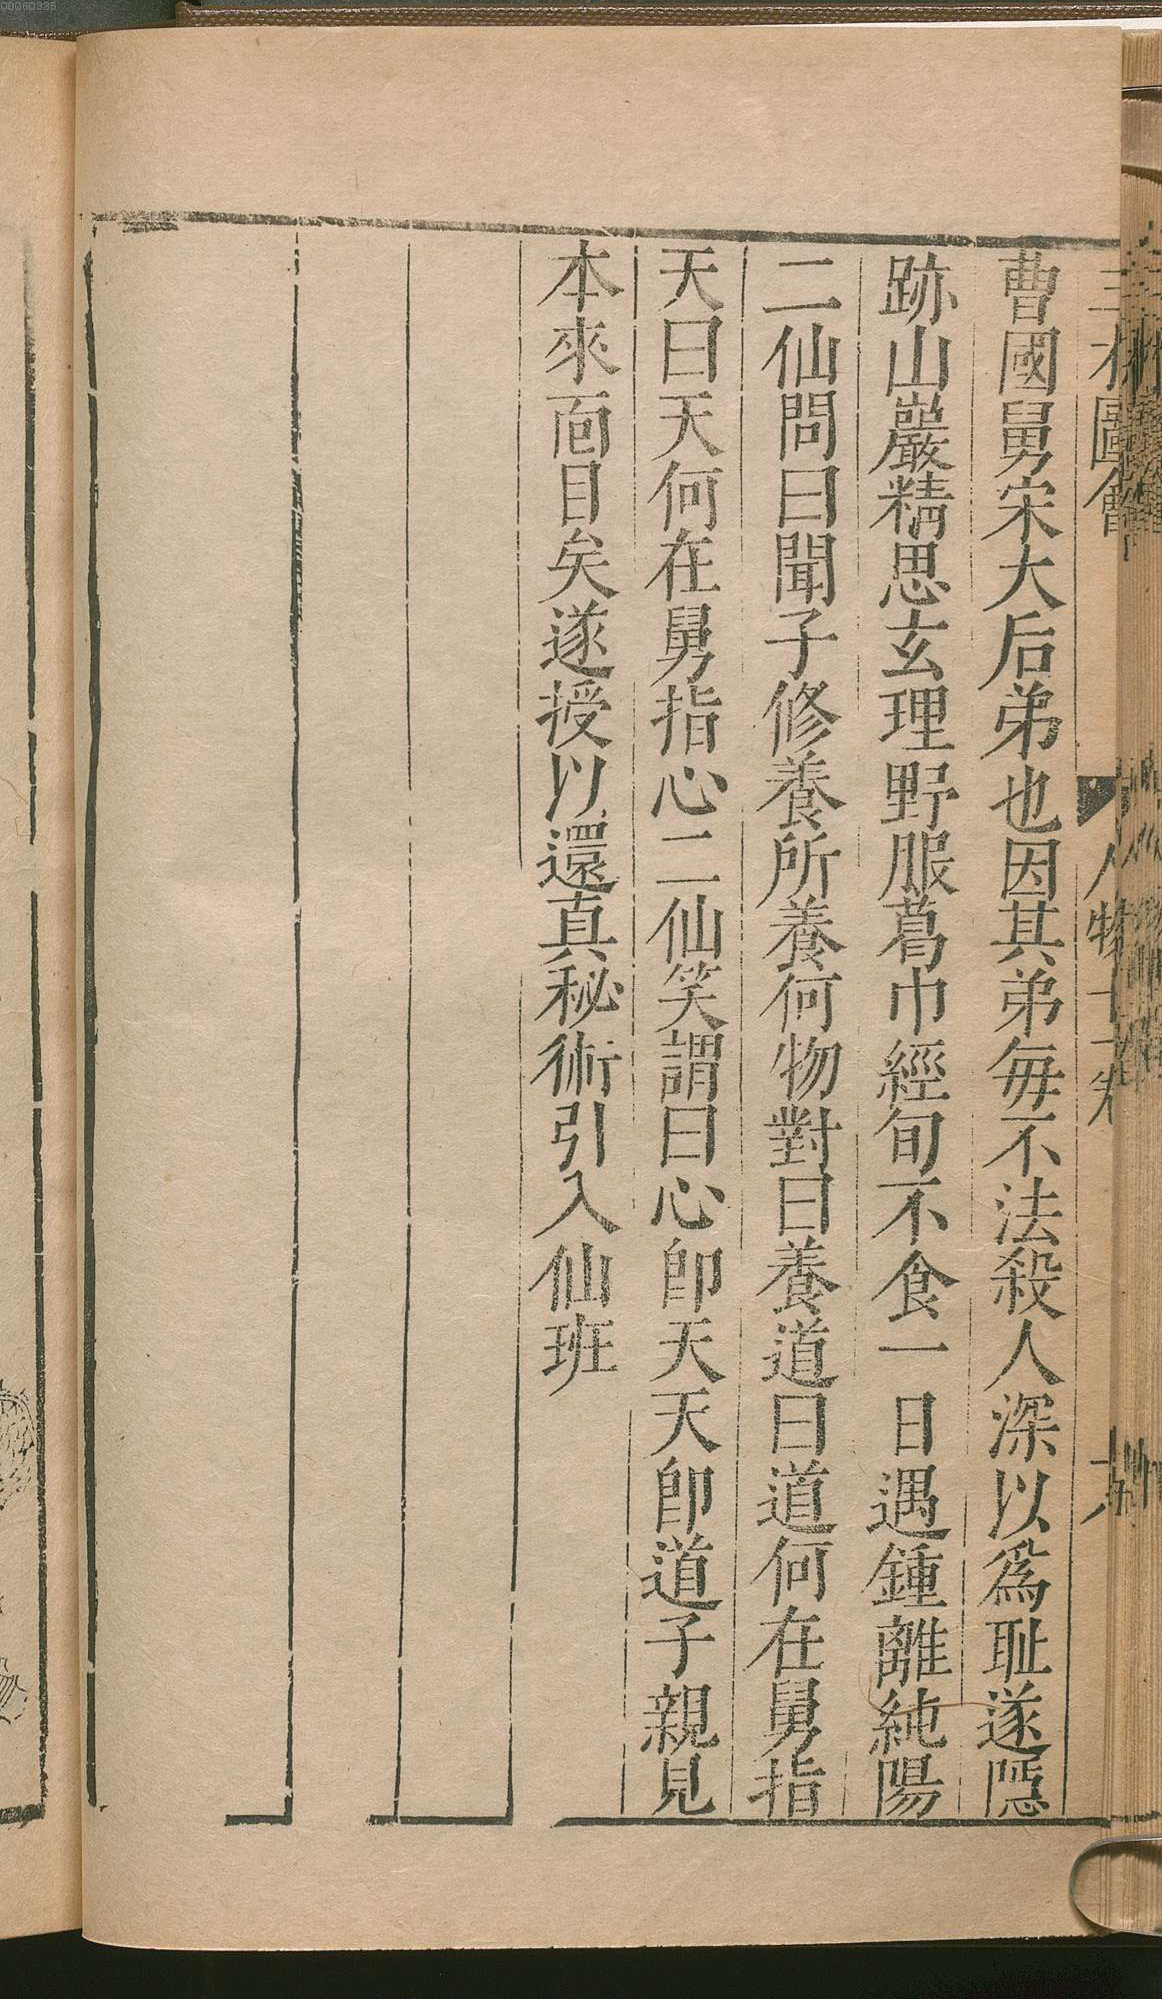 三才圖會 人物十一卷
曹國舅宋大后弟也因其弟每不法殺人深以爲耻遂隱
跡山巖精思玄理野服葛巾經旬不食一日遇鍾離純陽
二仙問曰聞子修養所養何物對曰養道曰道何在舅指
天曰天何在舅指心二仙笑謂曰心卽天天卽道子親見
本來面目矣遂授以還真秘術引入仙班
00060335